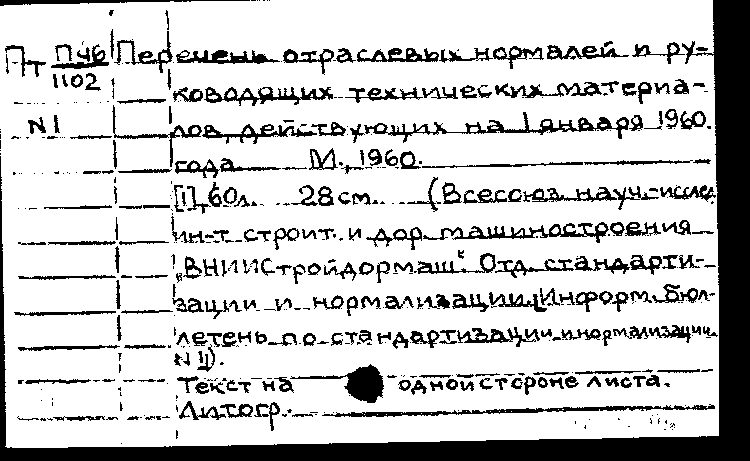 Пт П46 Перечень отраслевых нормалей и ру-
1102 ководящих технических материа-
N1 лов, действующих на 1 января 1960
года М., 1960.
[1], 60л. 28 см. (Всесоюз. науч.-исслед
ин-т строит. и дор. машиностроения
„ВНИИСтройдормаш". Отд. стандарти-
зации и нормализации. Информ. бюл-
летень по стандартизации и нормализации.
N 1]).
Текст на одной стороне листа.
Литогр.